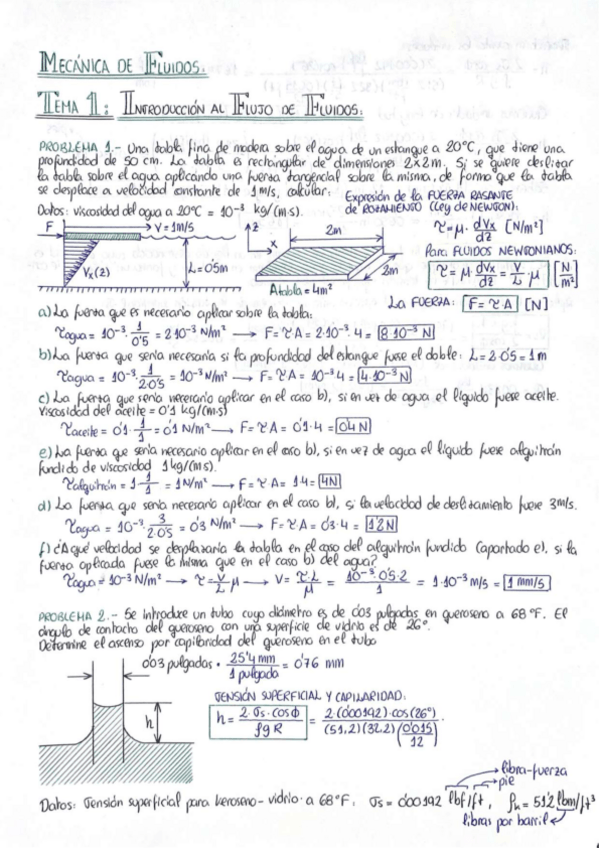 MECÁNICA DE FLUIDOS.
TEMA 1: INTRODUCCIÓN AL FLUJO DE FLUIDOS.
PROBLEMA 1.- Una tabla fina de madera sobre el agua de un estanque a 20°C, que tiene una
profundidad de 50 cm. La tabla es rectangular de dimensiones 2x2m. Si se quiere deslizar
la tabla sobre el agua aplicando una fuerza tangencial sobre la misma, de forma que la tabla
se desplace a velocidad constante de 1m/s, calcular:
Datos: viscosidad del agua a 20°C = 10⁻³ kg/(m·s).
Expresión de la FUERZA RASANTE
de ROZAMIENTO (Ley de NEWTON):
τ = μ · dVx/dz [N/m²]
Para FLUIDOS NEWTONIANOS:
τ = μ · dVx/dz = V/L · μ [N/m²]
La FUERZA: F = τ·A [N]
F
V = 1m/s
Vx(z)
L = 0'5m
z
x
2m
2m
Atabla = 4m²
a) La fuerza que es necesario aplicar sobre la tabla:
τagua = 10⁻³ · 1/0'5 = 2·10⁻³ N/m² → F = τ·A = 2·10⁻³·4 = 8·10⁻³ N
b) La fuerza que sería necesaria si la profundidad del estanque fuese el doble: L = 2·0'5 = 1m
τagua = 10⁻³ · 1/2·0'5 = 10⁻³ N/m² → F = τ·A = 10⁻³·4 = 4·10⁻³ N
c) La fuerza que sería necesario aplicar en el caso b), si en vez de agua el líquido fuese aceite.
Viscosidad del aceite = 0'1 kg/(m·s)
τaceite = 0'1 · 1/1 = 0'1 N/m² → F = τ·A = 0'1·4 = 0'4N
e) La fuerza que sería necesario aplicar en el caso b), si en vez de agua el líquido fuese alquitrán
fundido de viscosidad 1kg/(m·s).
τalquitrán = 1 · 1/1 = 1N/m² → F = τ·A = 1·4 = 4N
d) La fuerza que sería necesario aplicar en el caso b), si la velocidad de deslizamiento fuese 3m/s.
τagua = 10⁻³ · 3/2·0'5 = 0'3 N/m² → F = τ·A = 0'3·4 = 1'2N
f) ¿A qué velocidad se desplazaría la tabla en el caso del alquitrán fundido (apartado e), si la
fuerza aplicada fuese la misma que en el caso b) del agua?
τagua = 10⁻³ N/m² → τ = V/L μ → V = τ·L/μ = 10⁻³·0'5·2/1 = 1·10⁻³ m/s = 1 mm/s
PROBLEMA 2.- Se introduce un tubo cuyo diámetro es de 0'03 pulgadas en queroseno a 68°F. El
ángulo de contacto del queroseno con una superficie de vidrio es de 26°.
Determine el ascenso por capilaridad del queroseno en el tubo
0'03 pulgadas · 25'4 mm/1 pulgada = 0'76 mm
TENSIÓN SUPERFICIAL Y CAPILARIDAD:
h = 2·σs·cosϕ/ρgR = 2·(0'00192)·cos(26°)/(51,2)(32,2)(0'015/12)
h
libra-fuerza
pie
Datos: Tensión superficial para keroseno-vidrio a 68°F. σs = 0'00192 lbf/ft, ρk = 51'2 lbm/ft³
libras por barril